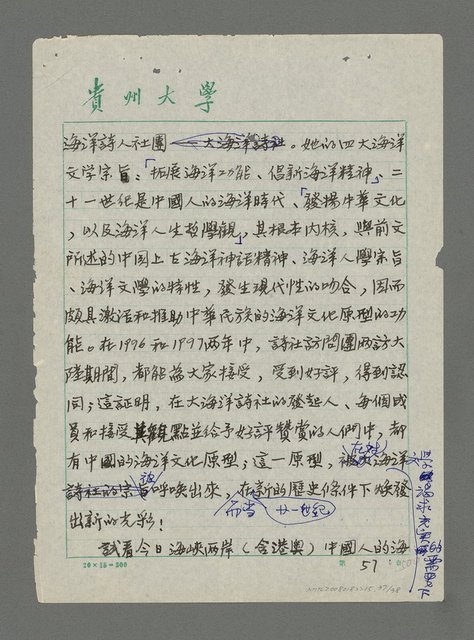 貴州大學
海洋詩人社團——大海洋詩社。她的四大海洋
文学宗旨、「拓展海洋功能、倡新海洋精神、二
十一世紀是中國人的海洋時代、「發揚中華文化
，以及海洋人生哲學觀」，其根本內核，與前文
所述的中國上古海洋神話精神、海洋人學宗旨
、海洋文學的特性，發生現代性的吻合，因而
頗具激活和推助中華民族的海洋文化原型的功
能。在1996和1997两年中，詩社訪問團两訪大
陸期間，都能為大家接受，受到好評，得到認
同；這証明，在大海洋詩社的發起人、每個成
員和接受其觀點並給予好評贊賞的人們中，都
有中國的海洋文化原型；這一原型，被大海洋
詩社的宗旨呼唤出來，在新的歷史條件下焕發
出新的光彩！
而当
廿一世紀
試看今日海峡两岸（含港奥）中國人的海
20×15=300
第 57